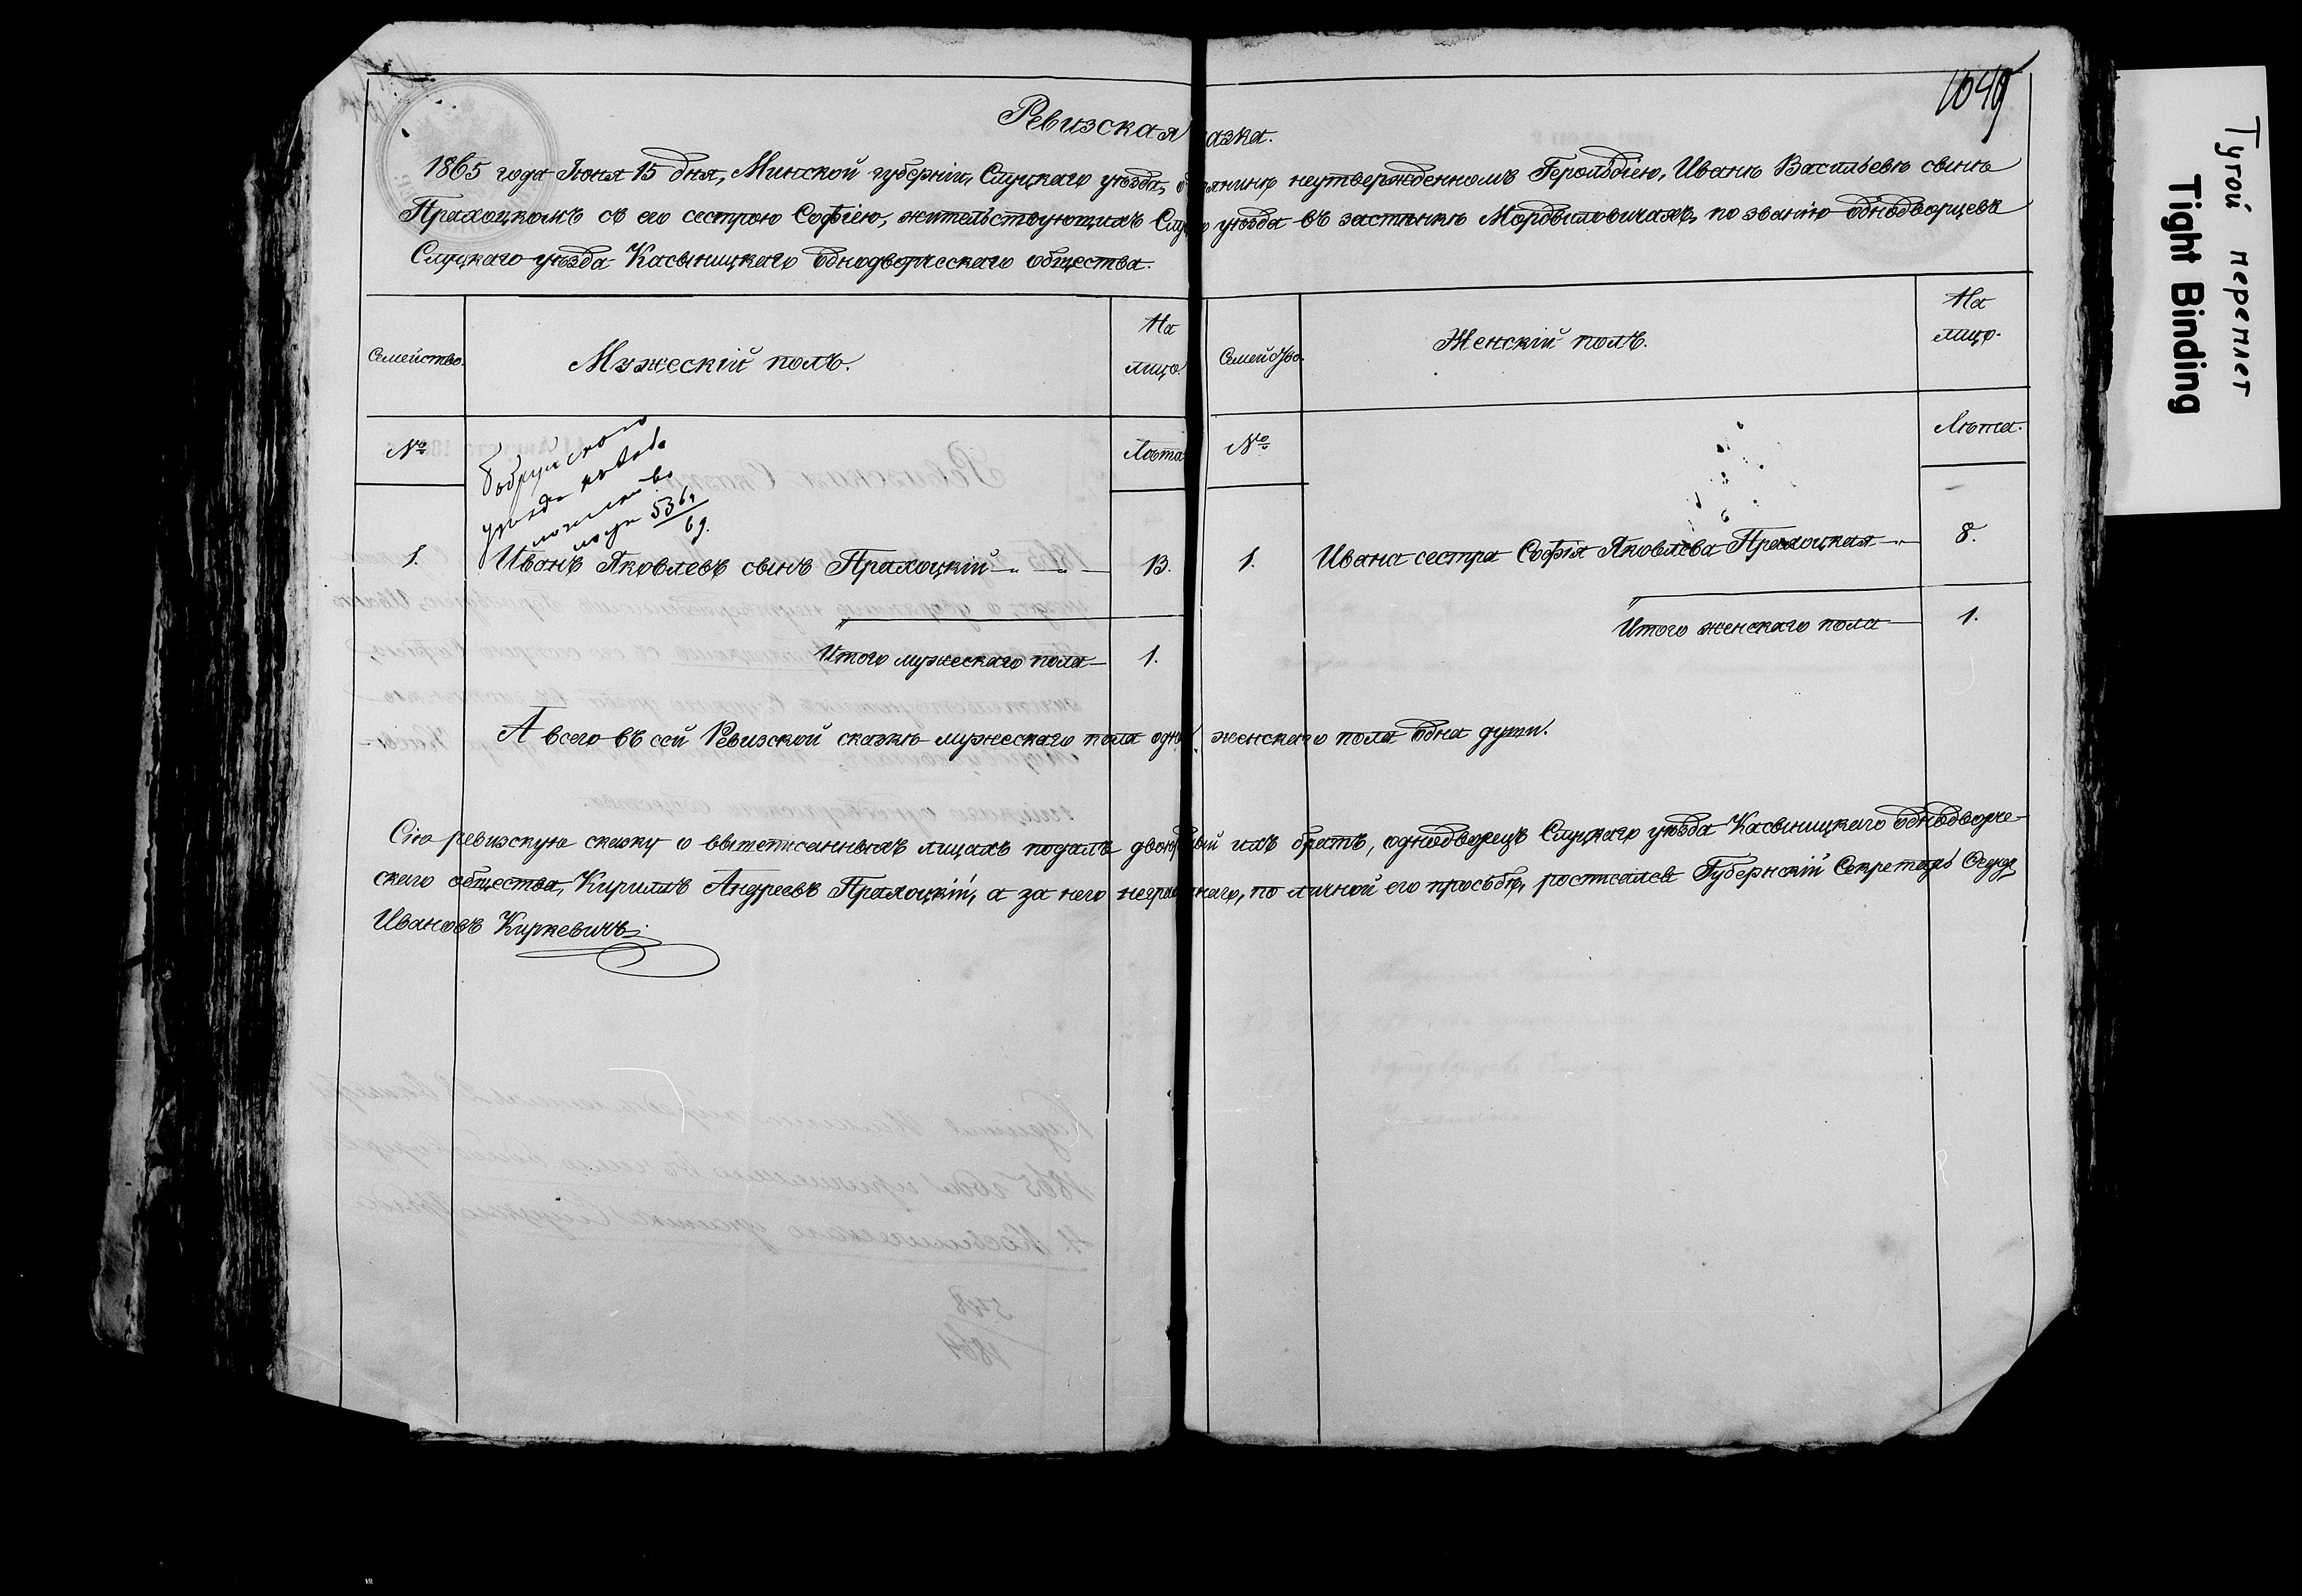 1049
Ревизская азка.
1865 года Іюня 15 дня, Минской губерніи, Слуцкаго уѣзда, о янинѣ неутвержденномъ Герольдіею, Иванѣ Васильевѣ сынѣ
Прахоцкомъ съ его сестрою Софіею, жительствующихъ Слуц о уѣзда въ застѣнкѣ Мордвиловичахъ, по званію однодворцевъ
Слуцкаго уѣзда Касыницкаго однодворческаго общества.
Семейство. Мужескій полъ. На лицо. Семейство. Женскій полъ. На лицо.
№ Лѣта № Лѣта.
Бобруйскаго
уѣзда
536
69.
1. Иванъ Яковлевъ сынъ Прахоцкій 13. 1. Ивана сестра Софія Яковлева Прахоцкая 8.
Итого мужескаго пола 1. Итого женскаго пола 1.
А всего въ сей Ревизской сказкѣ мужескаго пола одна женскаго пола одна души.
Сію ревизскую сказку о вышеписанныхъ лицахъ подалъ двою ный ихъ братъ, однодворецъ Слуцкаго уѣзда Касыницкаго однодворче-
скаго общества, Кириллъ Андреевъ Прахоцкій, а за него неграм наго, по личной его просьбѣ, росписался Губернскій Секретарь
Ивановъ Киркевичъ.
Тугой переплет
Tight Binding